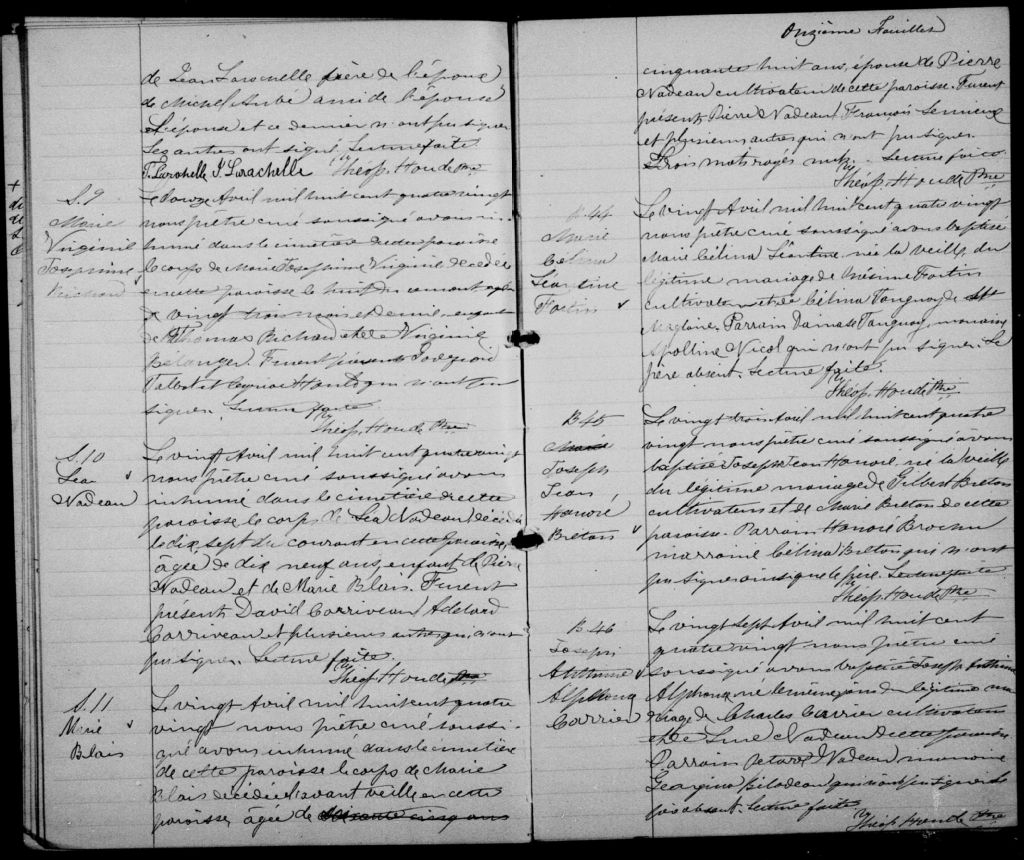 de Jean Larochelle frère de l'épouse
de Michel Aubé ami de l'épouse
L'épouse et ce dernier n'ont pu signer
Les autres ont signé. Lecture faite
T. Larochelle J. Larochelle Théop. Houde Ptre
S. 9
Marie
Virginie
Josephine
Richard
Le douze Avril mil huit cent quatre vingt
nous prêtre curé soussigné avons in-
humé dans le cimetière de cette paroisse
le corps de Marie Josephine Virginie décédée
en cette paroisse le huit du courant agée
de vingt trois mois et demie, enfant
de Thomas Richard et de Virginie
Bélanger. Furent présents
Talbot et Houde qui n'ont pu
signer. Lecture faite
Théop. Houde Ptre
S. 10
Lea
Nadeau
Le vingt Avril mil huit cent quatre vingt
nous prêtre curé soussigné avons
inhumé dans le cimetière de cette
paroisse le corps de Lea Nadeau décédée
le dix sept du courant en cette paroisse,
agée de dix neuf ans, enfant de Pierre
Nadeau et de Marie Blais. Furent
présents David Corriveau Adelard
Corriveau et plusieurs autres qui n'ont
pu signer. Lecture faite.
Théop. Houde Ptre
S. 11
Marie
Blais
Le vingt Avril mil huit cent quatre
vingt nous prêtre curé soussi-
gné avons inhumé dans le cimetière
de cette paroisse le corps de Marie
Blais décédée l'avant veille en cette
paroisse, agée de soixante cinq ans
Onzième Feuillet
cinquante huit ans, épouse de Pierre
Nadeau cultivateur de cette paroisse. Furent
présents Pierre Nadeau François Lemieux
et plusieurs autres qui n'ont pu signer.
Trois mots rayés nuls. Lecture faite
Théop. Houde Ptre
B. 44
Marie
Célina
Léontine
Fortin
Le vingt Avril mil huit cent quatre vingt
nous prêtre curé soussigné avons baptisé
Marie Célina Léontine née la veille du
légitime mariage de Onésime Fortin
cultivateur et de Célina Tanguay de St
Magloire. Parrain Damase Tanguay, marraine
Apolline Nicol qui n'ont pu signer. Le
père absent. Lecture faite.
Théop. Houde Ptre
B 45
Joseph
Jean
Honoré
Breton
Le vingt trois Avril mil huit cent quatre
vingt nous prêtre curé soussigné avons
baptisé Joseph Jean Honoré né la veille
du légitime mariage de Gilbert Breton
cultivateur et de Marie Breton de cette
paroisse. Parrain Honoré Brochu
marraine Célina Breton qui n'ont
pu signer ainsi que le père. Lecture faite
Théop. Houde Ptre
B 46
Joseph
Alphonse
Carrier
Le vingt sept Avril mil huit cent
quatre vingt nous prêtre curé
soussigné avons baptisé Joseph
Alphonse né le même jour du légitime ma-
riage de Charles Carrier cultivateur
et de Luce Nadeau de cette paroisse
Parrain Octave Nadeau marraine
Georgina Bilodeau qui n'ont pu signer. Le
père absent. Lecture faite
Théop. Houde Ptre